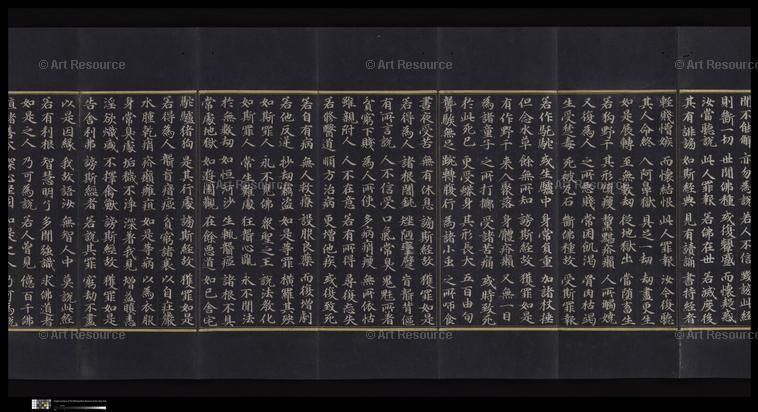 聞不能解 亦勿為說 若人不信 毀謗此經
則斷一切 世間佛種 或復顰蹙 而懷疑惑
汝當聽說 此人罪報 若佛在世 若滅度後
其有誹謗 如斯經典 見有讀誦 書持經者
輕賤憎嫉 而懷結恨 此人罪報 汝今復聽
其人命終 入阿鼻獄 具足一劫 劫盡更生
如是展轉 至無數劫 從地獄出 當墮畜生
若狗野干 其形瘦 黧黮疥癩 人所觸嬈
又復為人 之所惡賤 常困飢渴 骨肉枯竭
生受楚毒 死被瓦石 斷佛種故 受斯罪報
若作駝 或生驢中 身常負重 加諸杖捶
但念水草 餘無所知 謗斯經故 獲罪如是
有作野干 來入聚落 身體疥癩 又無一目
為諸童子 之所打擲 受諸苦痛 或時致死
於此死已 更受蟒身 其形長大 五百由旬
聾騃無足 宛轉腹行 為諸小蟲 之所唼食
晝夜受苦 無有休息 謗斯經故 獲罪如是
若得為人 諸根闇鈍 矬陋攣躄 盲聾背傴
有所言說 人不信受 口氣常臭 鬼魅所著
貧窮下賤 為人所使 多病痟瘦 無所依怙
雖親附人 人不在意 若有所得 尋復忘失
若修醫道 順方治病 更增他疾 或復致死
若自有病 無人救療 設服良藥 而復增劇
若他反逆 抄劫竊盜 如是等罪 橫羅其殃
如斯罪人 永不見佛 眾聖之王 說法教化
如斯罪人 常生難處 狂聾心亂 永不聞法
於無數劫 如恒河沙 生輒聾瘂 諸根不具
常處地獄 如遊園觀 在餘惡道 如己舍宅
駝驢猪狗 是其行處 謗斯經故 獲罪如是
若得為人 聾盲瘖瘂 貧窮諸衰 以自莊嚴
水腫乾痟 疥癩癰疽 如是等病 以為衣服
身常臭處 垢穢不淨 深著我見 增益瞋恚
婬欲熾盛 不擇禽獸 謗斯經故 獲罪如是
告舍利弗 謗斯經者 若說其罪 窮劫不盡
以是因緣 我故語汝 無智人中 莫說此經
若有利根 智慧明了 多聞強識 求佛道者
如是之人 乃可為說 若人曾見 億百千佛
殖諸善本 深心堅固 如是之人 乃可為說
© Art Resource
© Art Resource
© Art Resource
© Art Resource
© Art Resource
© Art Resource